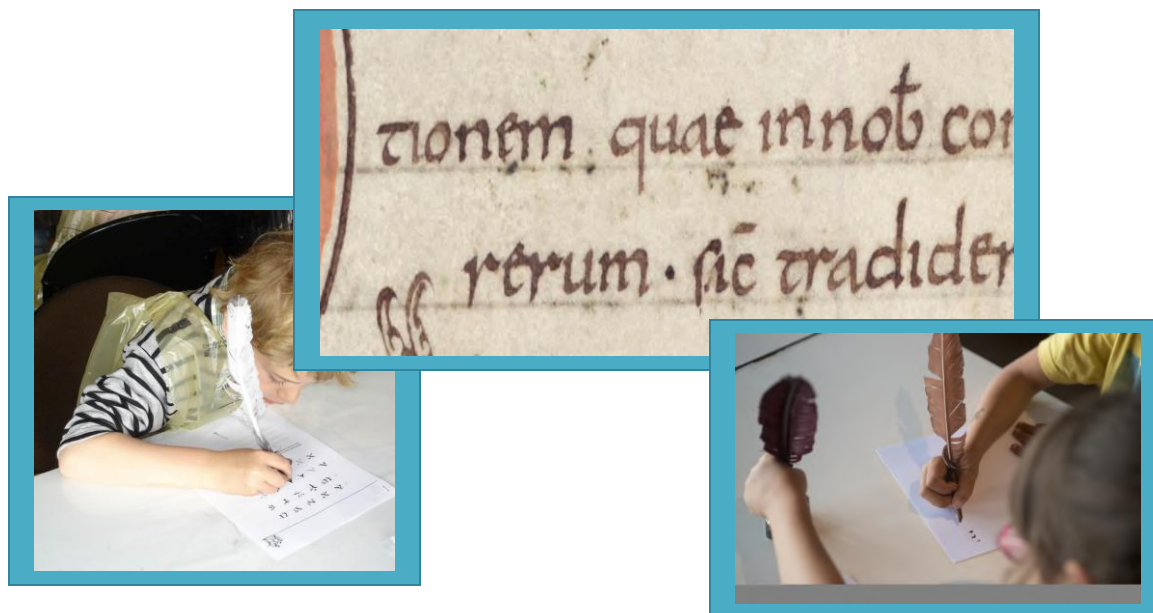 tionem . quae in nob̄ co
rerum · sic̄ tradider